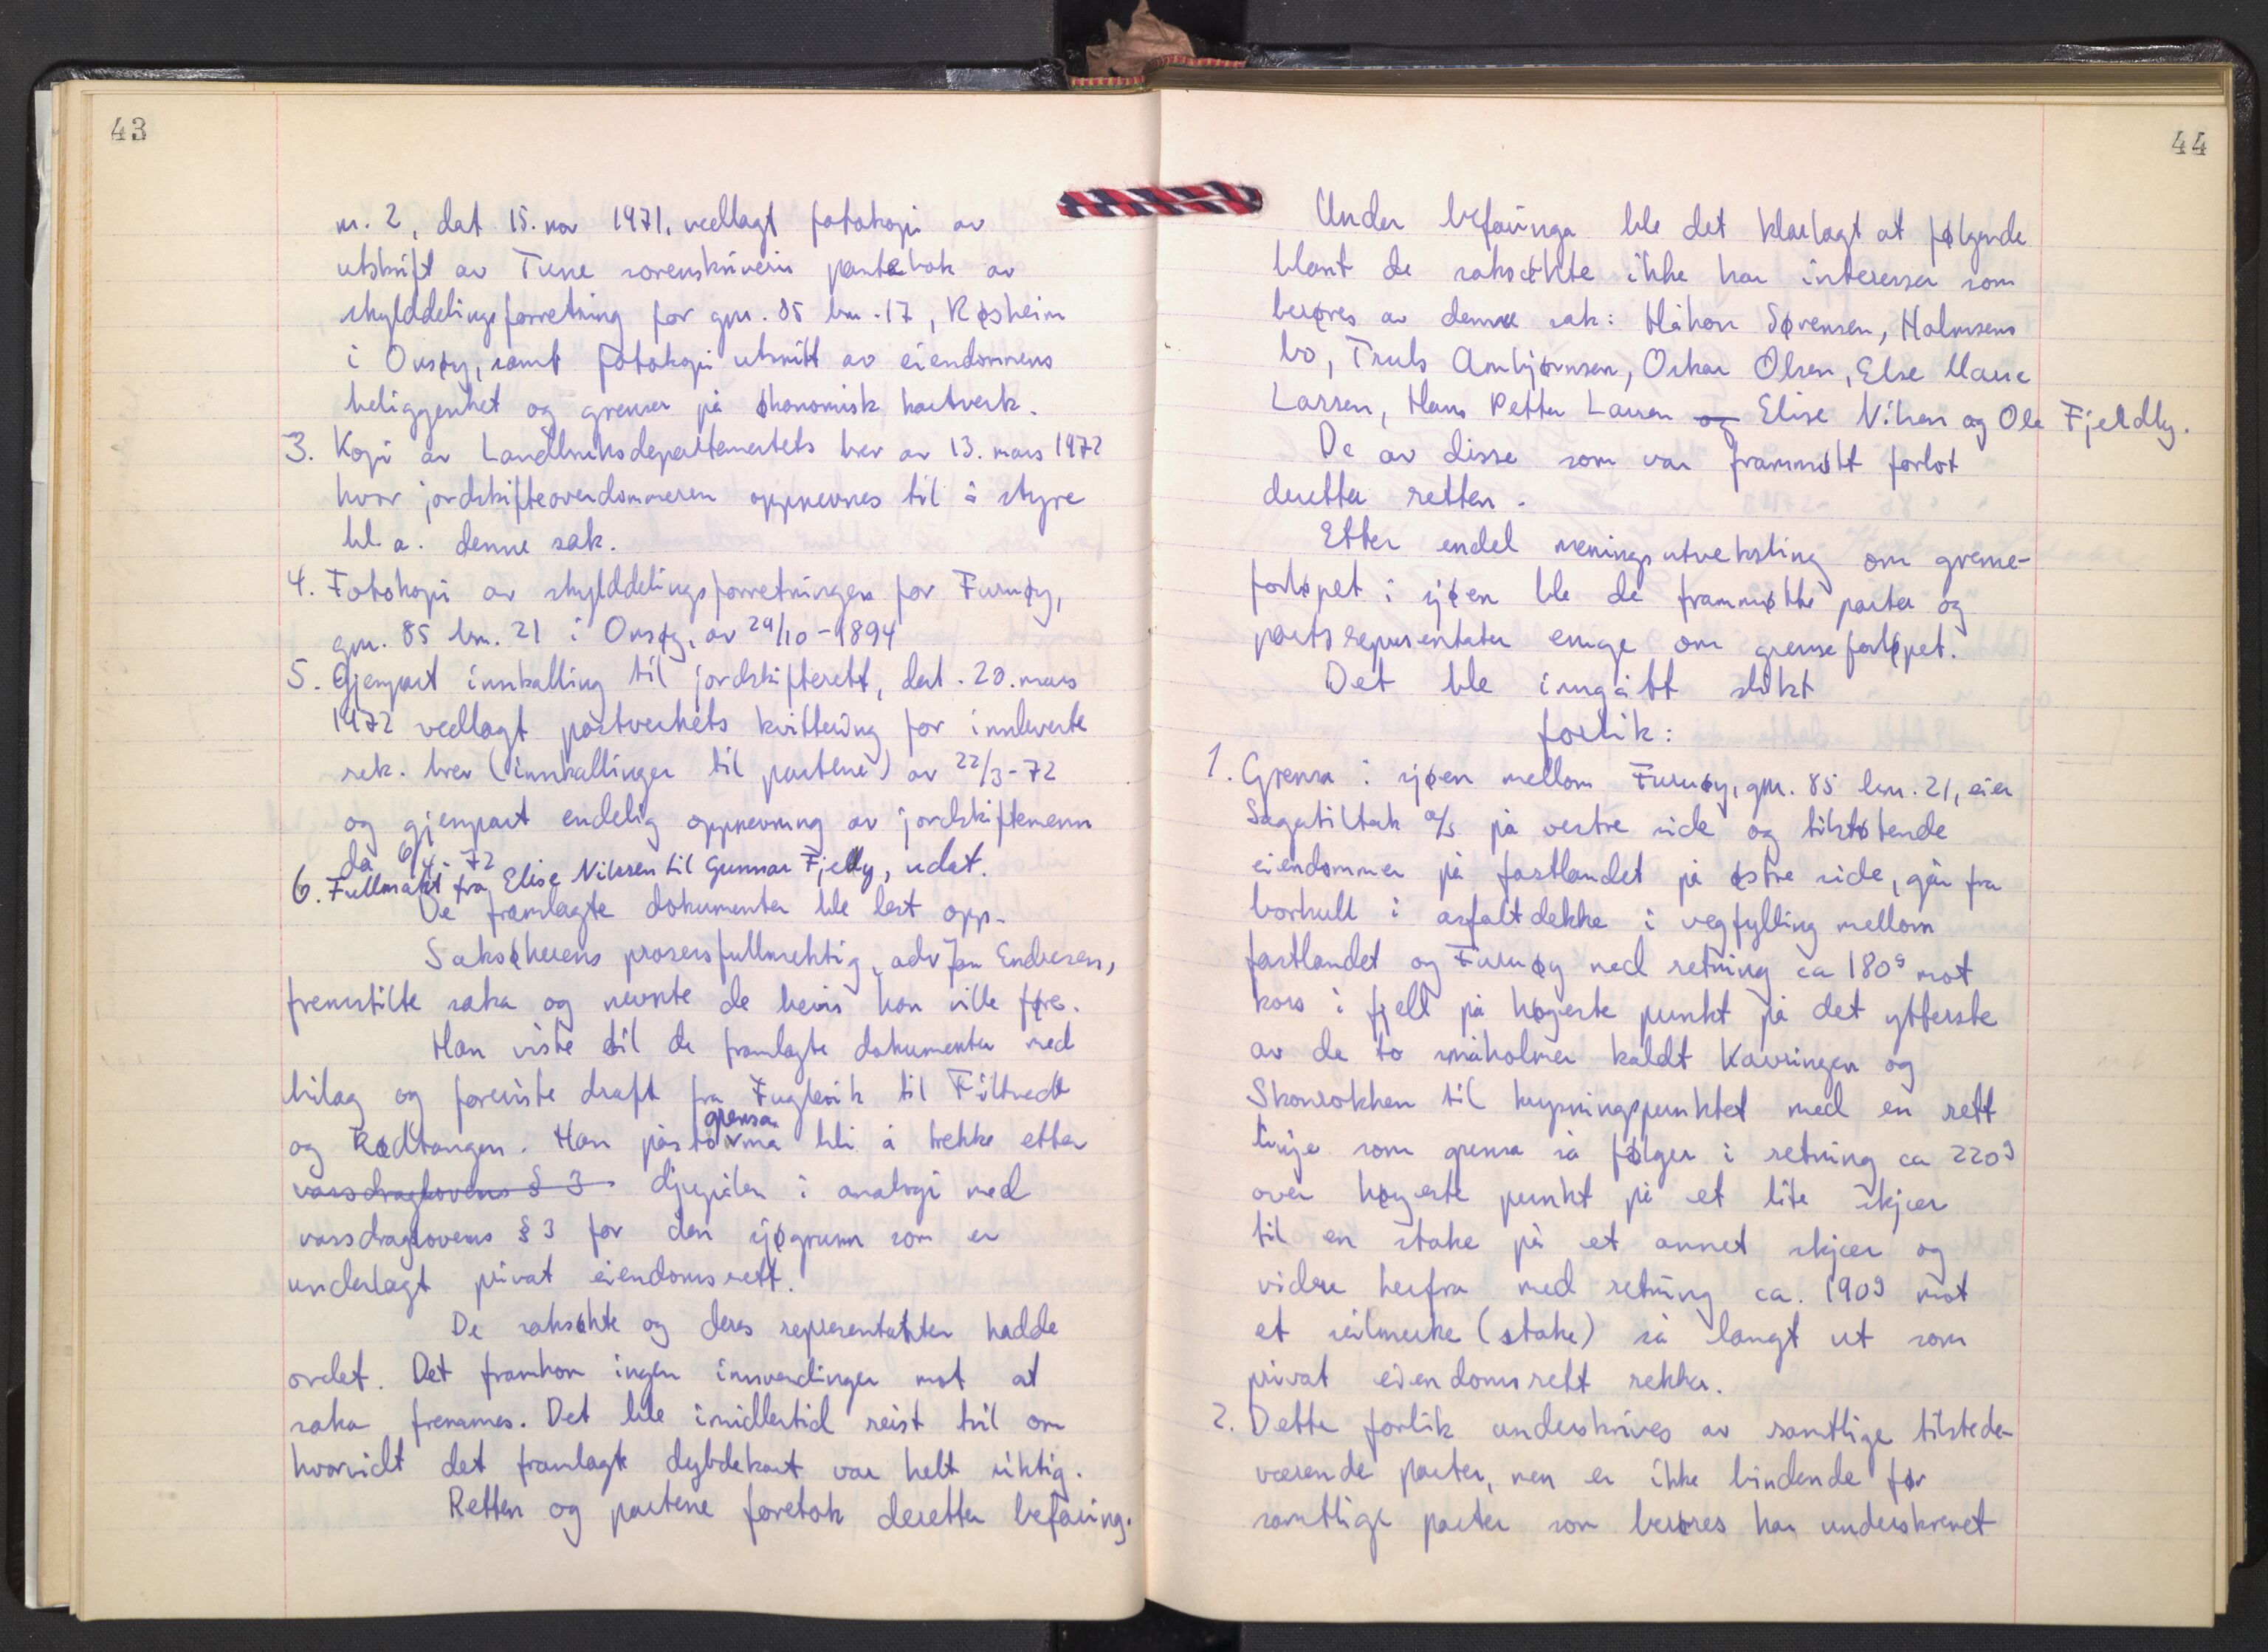 43
nr. 2, dat 15. nov 1971, vedlagt fotokopi av
utskrift av Tune sorenskriveris pantebok av
skylddelingsforretning for gnr. 85 bnr. 17, Røsheim
i Onsøy, samt fotokopi utsnitt av eiendommens
beliggenhet og grenser på økonomisk kartverk.
3. Kopi av Landbruksdepartementets brev av 13. mars 1972
hvor jordskifteoverdommeren oppnevnes til å styre
bl. a. denne sak.
4. Fotokopi av skylddelingsforretningen for Furuøy,
gnr. 85 bnr. 21 i Onsøy, av 24/10-1894
5. Gjenpart innkalling til jordskifterett, dat. 20. mars
1972 vedlagt postverkets kvittering for innleverte
rek. brev (innkallinger til partene) av 22/3-72
og gjenpart endelig oppnevning av jordskiftemenn
da 6/4-72
6. Fullmakt fra Elise Nilssen til Gunnar Fjelly, udat.
De framlagte dokumenter ble lest opp.
Saksøkerens prosessfullmektig, adv Jan Endresen,
fremstilte saka og nevnte de bevis han ville føre.
Han viste til de framlagte dokumenter med
bilag og foreviste draft fra Fuglevik til Filtvedt
og Rødtangen. Han påsto grensa må bli å trekke etter
vassdragslovens § 3 djupålen i analogi med
vassdragslovens § 3 for den sjøgrunn som er
underlagt privat eiendomsrett.
De saksøkte og deres representanter hadde
ordet. Det framkom ingen innvendinger mot at
saka fremmes. Det ble imidlertid reist tvil om
hvorvidt det framlagte dybdekart var helt riktig.
Retten og partene foretok deretter befaring.
44
Under befaringa ble det klarlagt at følgende
blant de saksøkte ikke har interesser som
berøres av denne sak: Håkon Sørensen, Holmsens
bo, Truls Ambjørnsen, Oskar Olsen, Else Marie
Larsen, Hans Petter Larsen og Elise Nilsen og Ole Fjeldly.
De av disse som var frammøtt forlot
deretter retten.
Etter endel meningsutveksling om grense-
forløpet i sjøen ble de frammøtte parter og
partsrepresentater enige om grenseforløpet.
Det ble inngått slikt
forlik:
1. Grensa i sjøen mellom Furuøy, gnr. 85 bnr. 21, eier
Sagatiltak a/s på vestre side og tilstøtende
eiendommer på fastlandet på østre side, går fra
borhull i asfaltdekke i vegfylling mellom
fastlandet og Furuøy med retning ca 180g mot
kors i fjell på høyeste punkt på det ytterste
av de to småholmer kaldt Kavringen og
Skonrokken til krysningspunktet med en rett
linje som grensa så følger i retning ca 220g
over høyeste punkt på et lite skjær
til en stake på et annet skjær og
videre herfra med retning ca. 190g mot
et seilmerke (stake) så langt ut som
privat eiendomsrett rekker.
2. Dette forlik underskrives av samtlige tilstede-
værende parter, men er ikke bindende før
samtlige parter som berøres har underskrevet